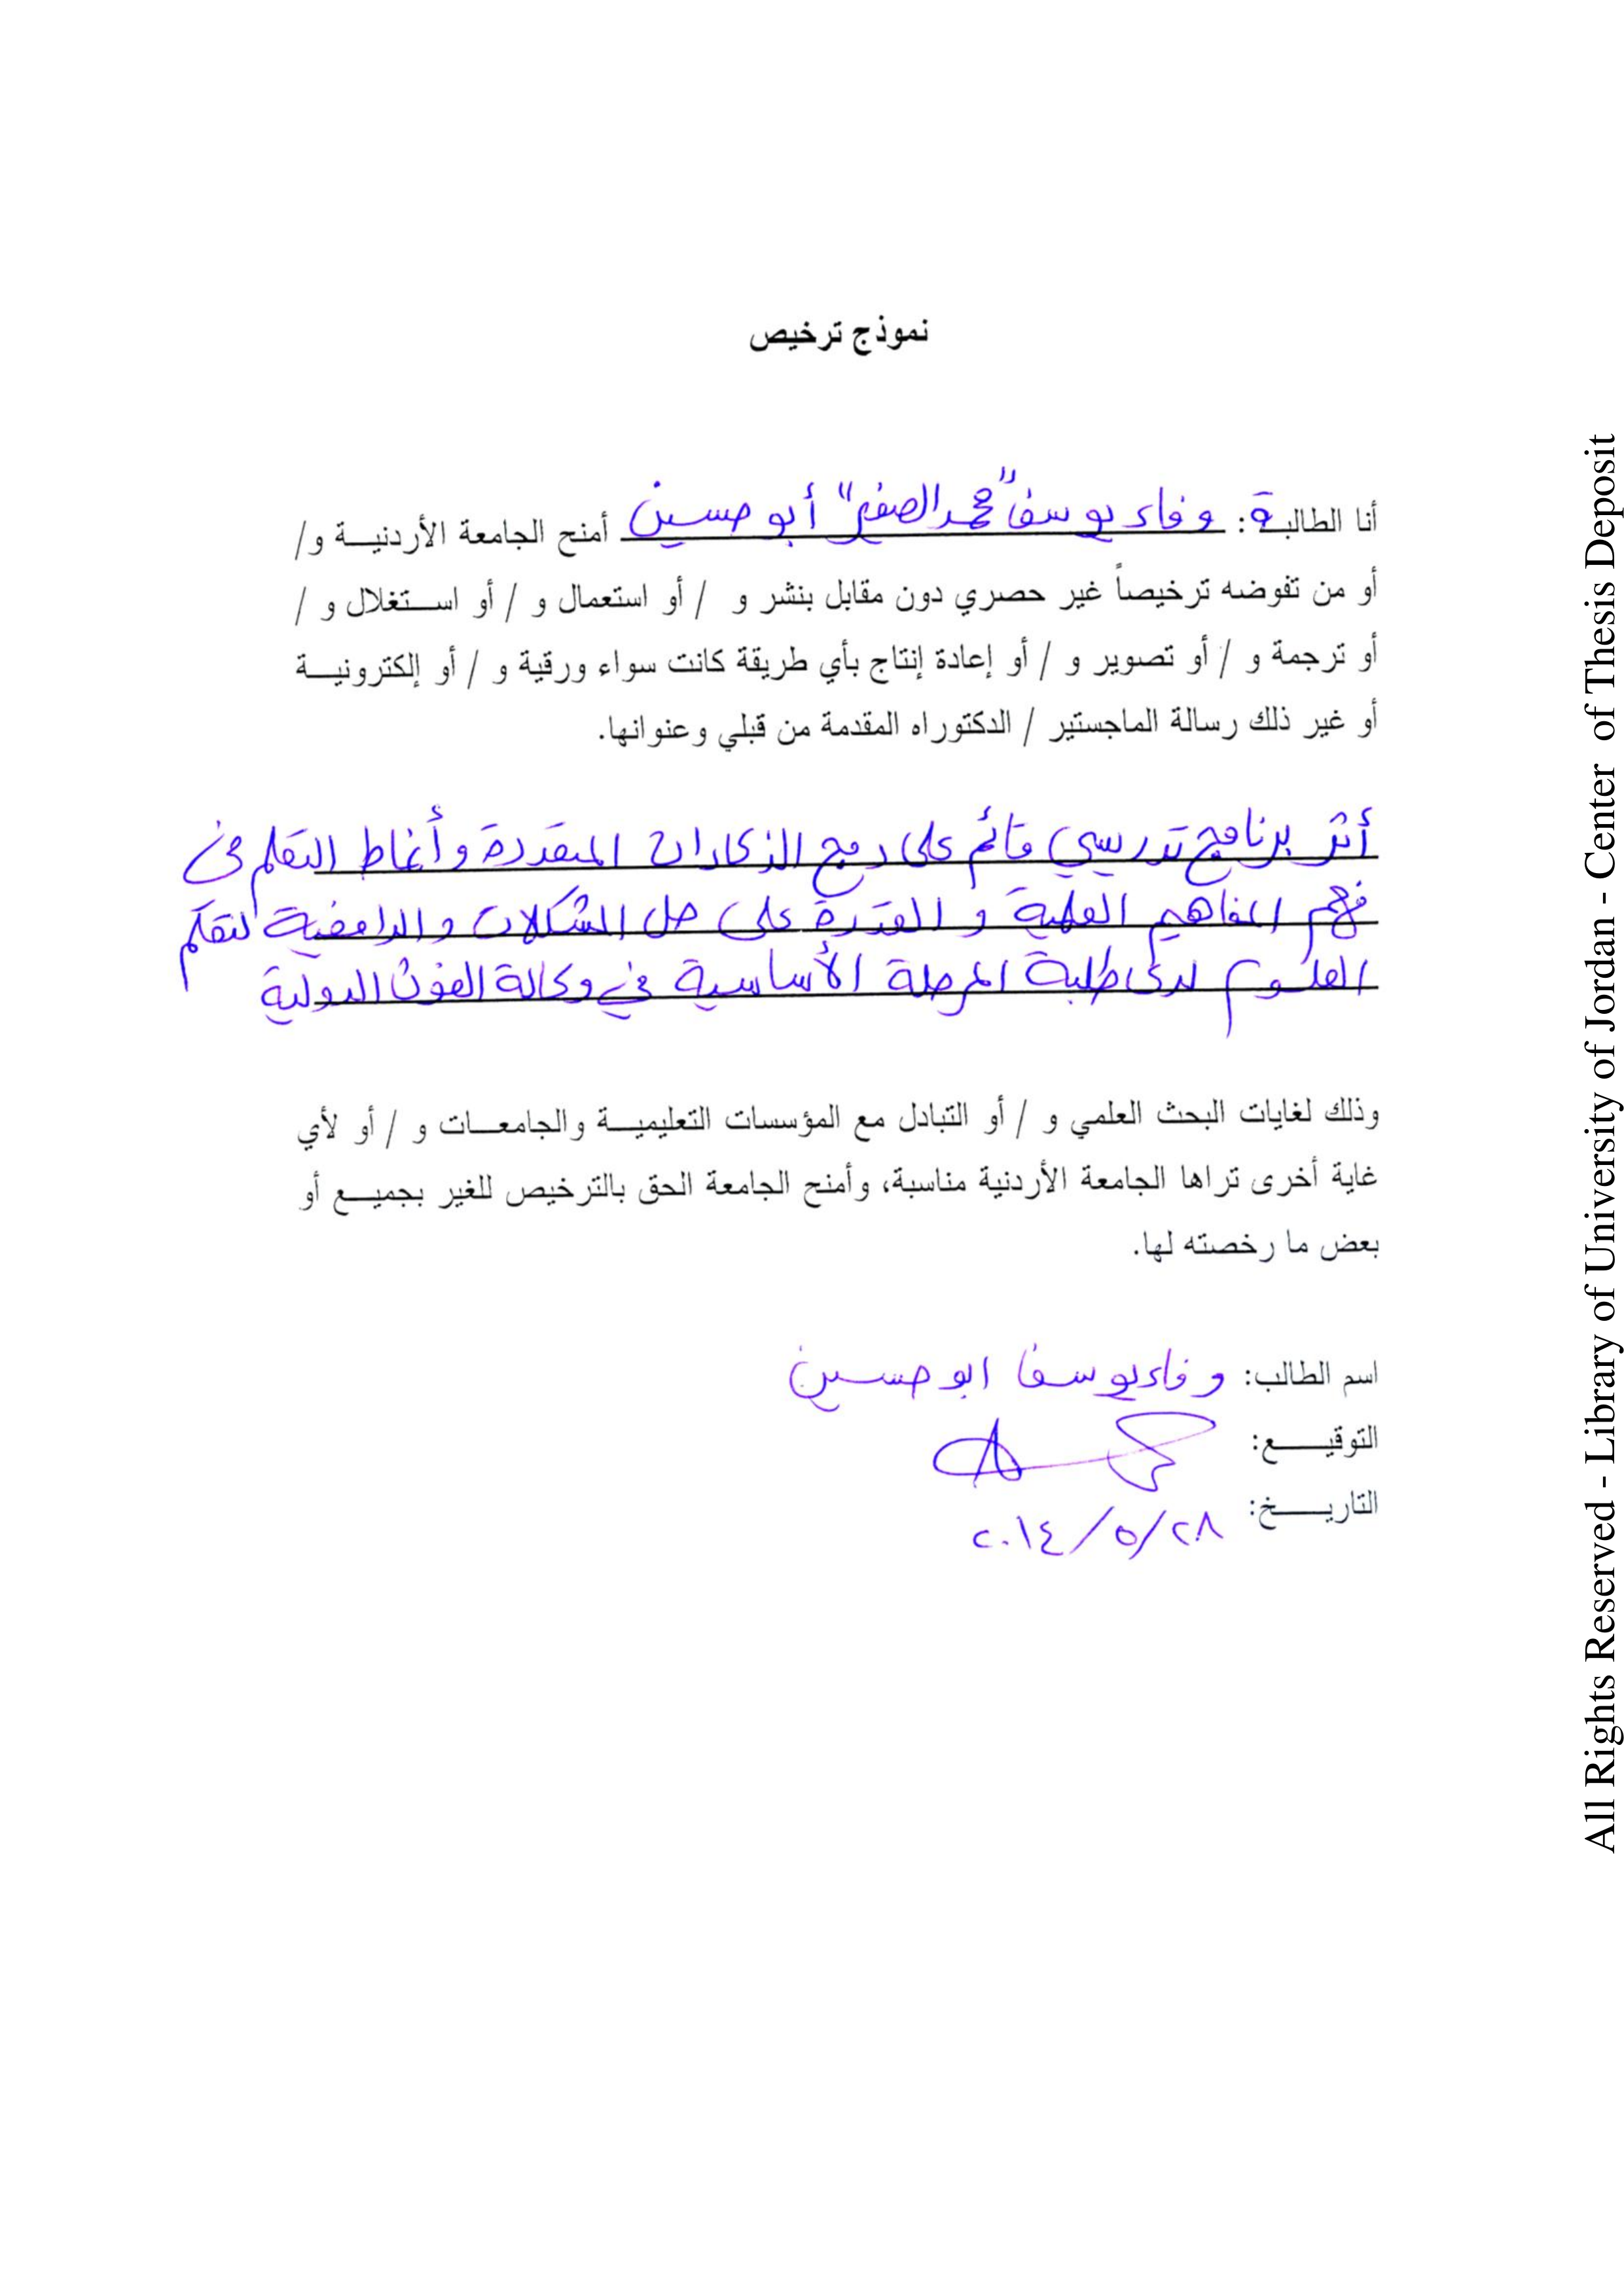 نموذج ترخيص
أنا الطالبة: وفاء يوسف "محمد الصغير" أبو حسين أمنح الجامعة الأردنيـــة و/
أو من تفوضه ترخيصاً غير حصري دون مقابل بنشر و / أو استعمال و / أو اســـتغلال و /
أو ترجمة و / أو تصوير و / أو إعادة إنتاج بأي طريقة كانت سواء ورقية و / أو إلكترونيـــة
أو غير ذلك رسالة الماجستير / الدكتوراه المقدمة من قبلي وعنوانها.
أثر برنامج تدريسي قائم على دمج الذكاءات المتعددة وأنماط التعلم في
فهم المفاهيم العلمية و القدرة على حل المشكلات و الدافعية لتعلم
العلوم لدى طلبة المرحلة الأساسية في وكالة الغوث الدولية
وذلك لغايات البحث العلمي و / أو التبادل مع المؤسسات التعليميـــة والجامعـــات و / أو لأي
غاية أخرى تراها الجامعة الأردنية مناسبة، وأمنح الجامعة الحق بالترخيص للغير بجميـــع أو
بعض ما رخصته لها.
اسم الطالب: وفاء يوسف ابو حسين
التوقيـــــع:
التاريـــــخ: ٢٠١٤/٥/٢٨
All Rights Reserved - Library of University of Jordan - Center of Thesis Deposit